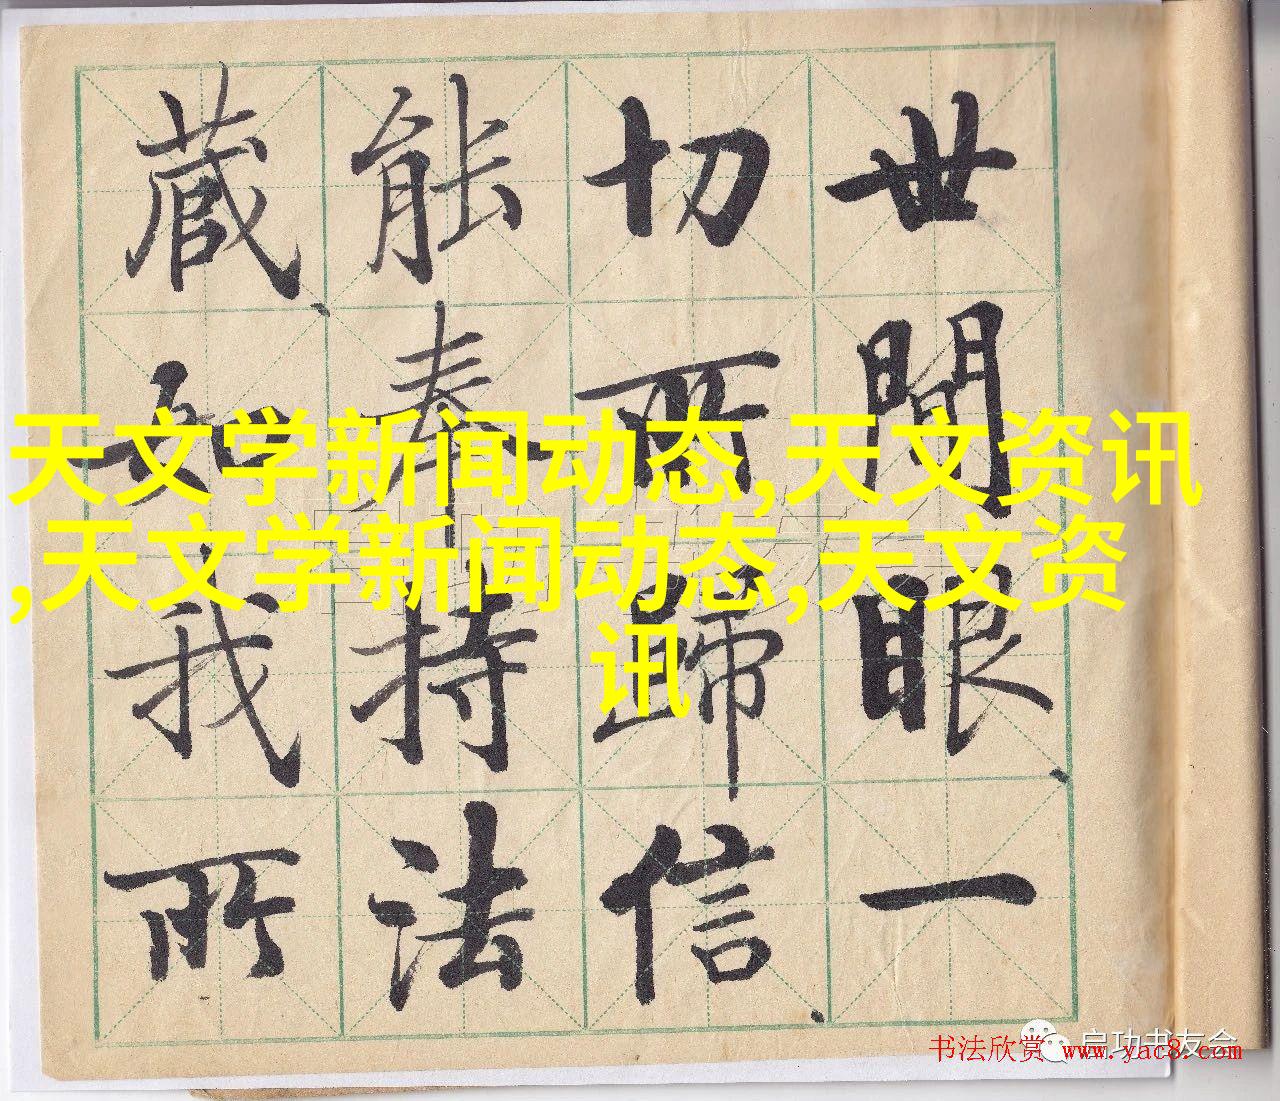 世間眼一
切所歸信
能奉持法
藏如我所
天文学新闻动态,天文资讯
,天文学新闻动态,天文资
讯
启功书友会
书法欣赏 www.yac8.com